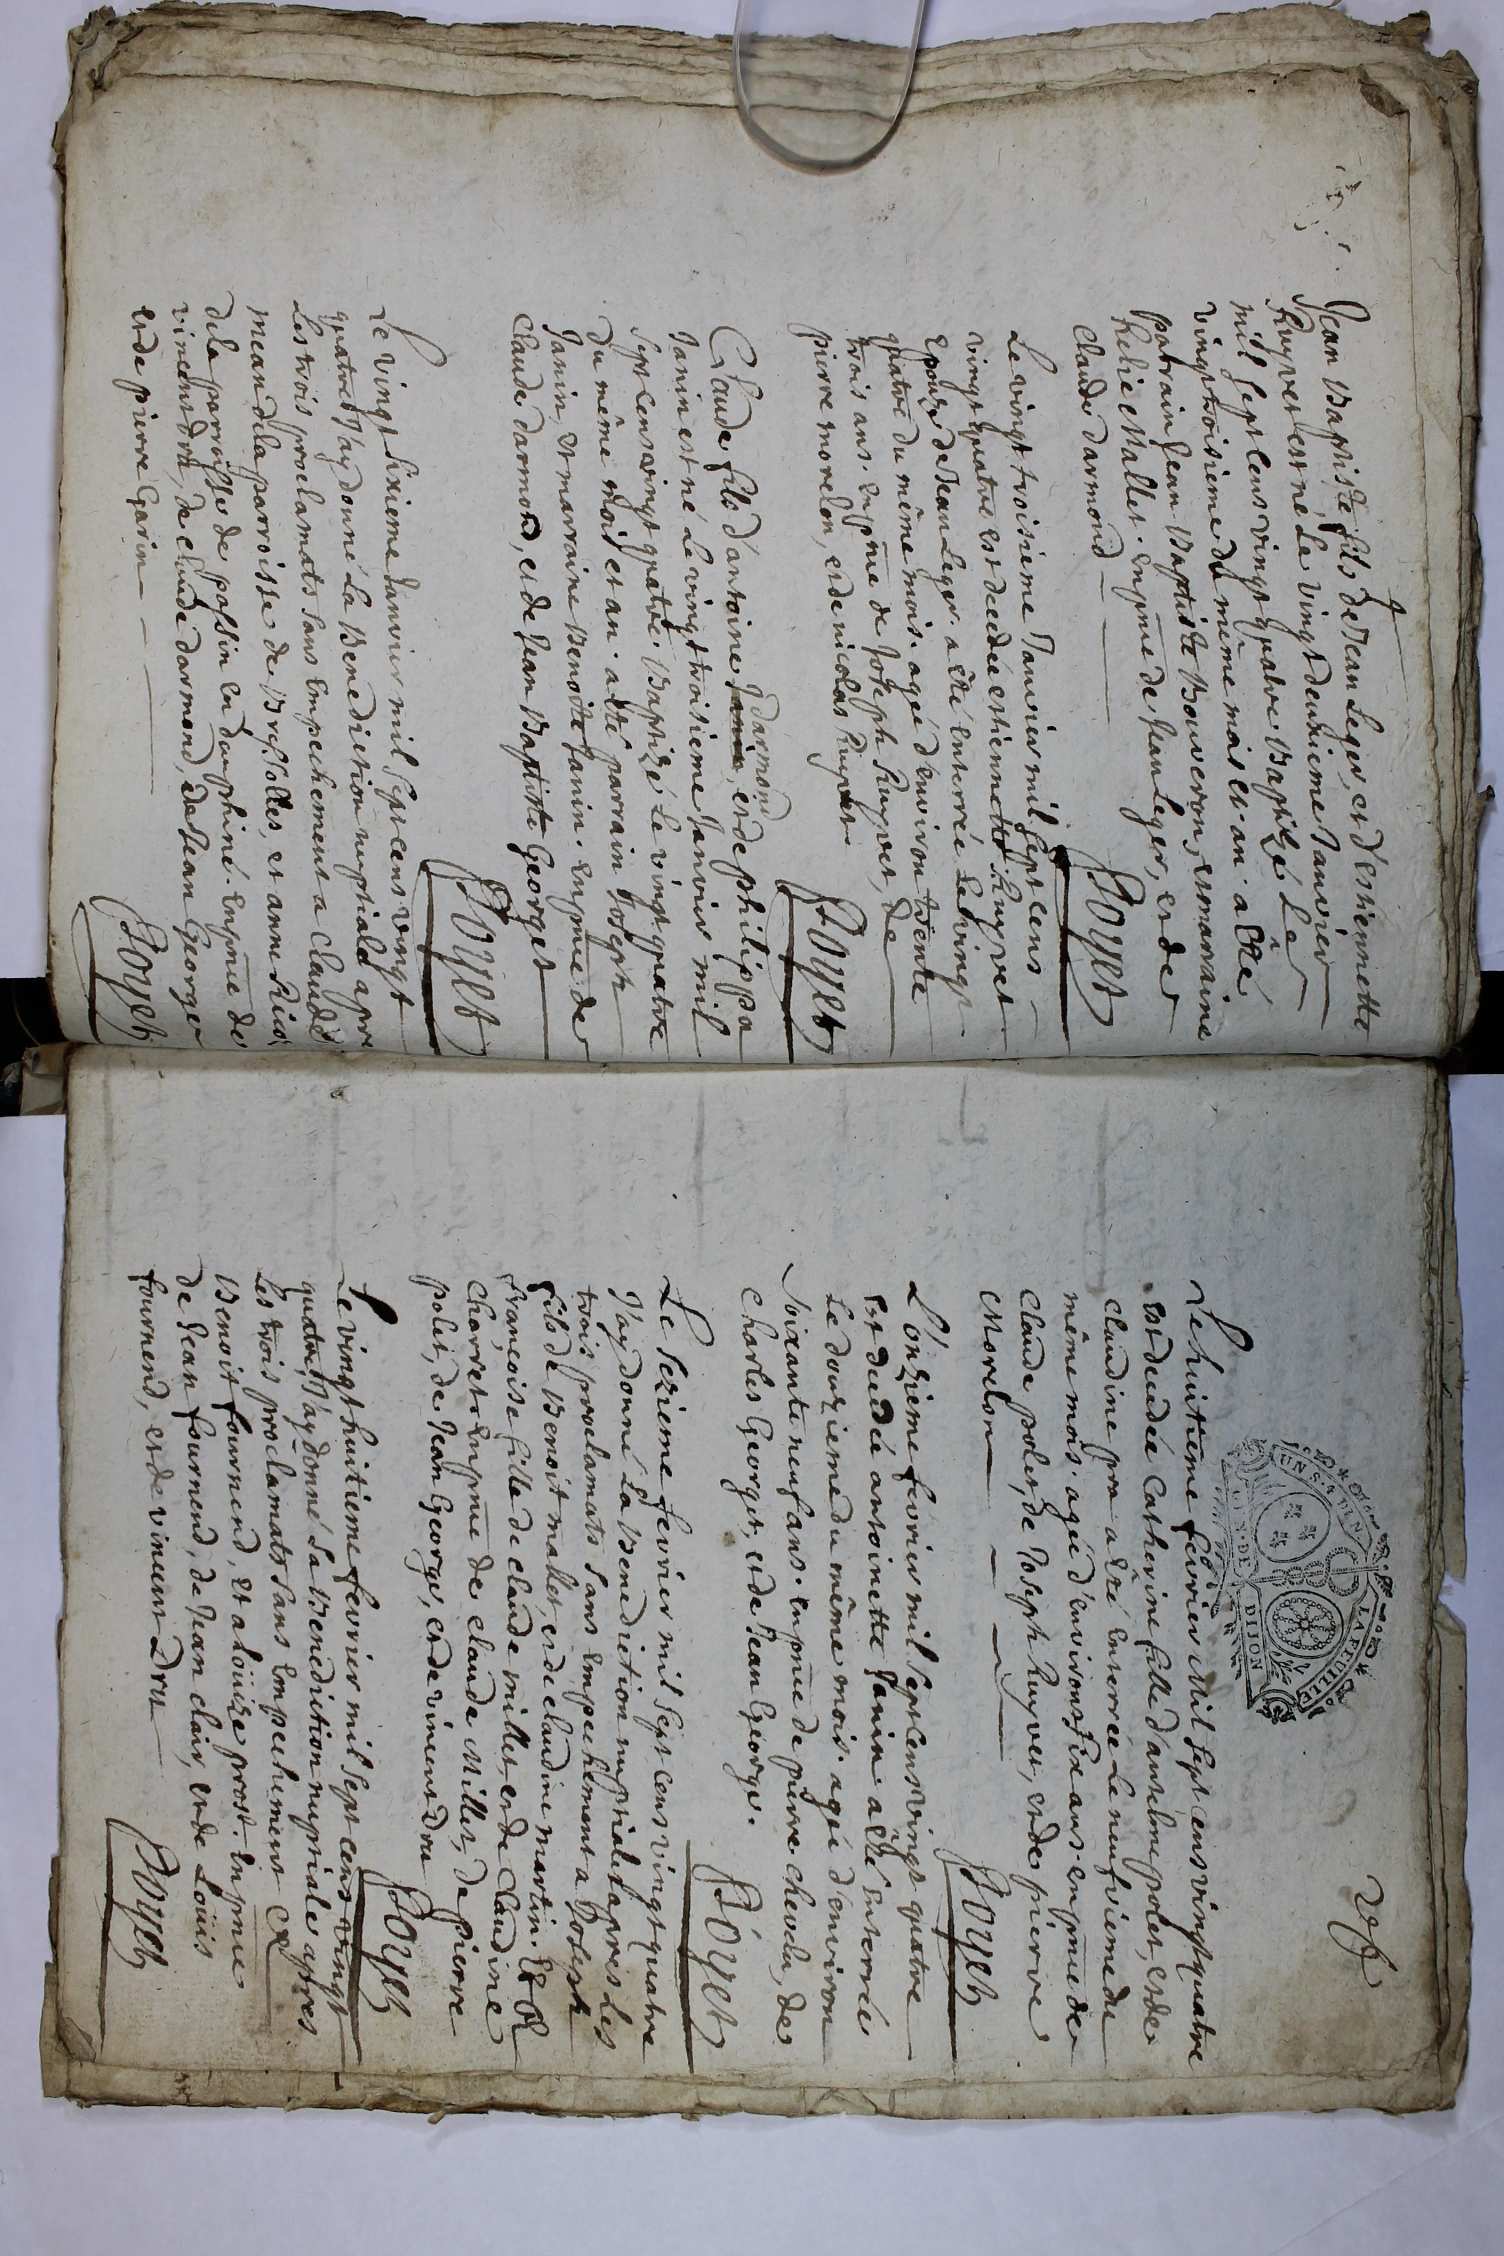 Jean Baptiste fils de Jean Leger, et d'estiennette
Ruyvet est né Le vingt deuxieme Janvier
mil sept cens vingt quatre. Baptizé Le
vingt troisieme du même mois et an. a Été
parrain Jean Baptiste Bouveron, et marraine
Helie Mallet. En pñce de Jean Leger, et de
Claude darmond
Boyet
Le vingt troisieme Janvier mil sept cens
vingt quatre est decedée estiennette Ruyvet
Epouse de Jean Leger. a été enterrée Le vingt
quatre du même mois. agée d'environ trente
trois ans. en pñce de Joseph Ruyvet, de
pierre morelon, et de nicolas Ruyvet
Boyet
darmond
Claude fils d'antoine Janin, et de philippa
Janin est né Le vingt troisieme Janvier mil
sept cens vingt quatre. Baptizé Le vingt quatre
du même mois et an. a été parrain Joseph
Janin, et marraine Benoite Janin. En pñce de
Claude darmond, et de Jean Baptiste Georget
Boyet
Le vingt sixieme Janvier mil sept cens vingt
quatre J'ay donné La Benediction nuptiale apres
Les trois proclamats sans Empechement a Claude
mean de la parroisse de Bressolles, et anne
de la parroisse de passin en dauphiné. En pñce de
vincent dru, de claude darmond, de Jean George
et de pierre Garin
Boyet
UN S. 4 DEN. LA FEUILLE
G. N. DE DIJON
Le huitieme fevrier Mil sept cens vingt quatre
est decedée Catherine fille d'anthelme polet, et de
claudine pra a été enterrée Le neufvieme du
même mois. agée d'environ six ans. en pñce de
claude polet, de Joseph Ruyvet, et de pierre
Morelon
Boyet
L'onzieme fevrier mil sept cens vingt quatre
est decedée antoinette Janin a été enterrée
Le douzieme du même mois. agée d'environ
soixante neuf ans. en pñce de pierre chevelu, de
charles Georget, et de Jean George.
Boyet
Le sezieme fevrier mil sept cens vingt quatre
J'ay donné La Benediction nuptiale apres Les
trois proclamats sans empechement a Joseph
fils de Benoit mallet, et de claudine martin. Et a
françoise fille de claude millet, et de Claudine
Charret. En pñce de claude Millet, de pierre
polet, de Jean George, et de vincent Dru
Boyet
Le vingt huitieme fevrier mil sept cens vingt
quatre J'ay donné La Benediction nuptiale apres
Les trois proclamats sans Empechement a
Benoit fournend, et a Loüize prost. En pñce
de Jean fournend, de Jean clair, et de Loüis
fournend, et de vincent Dru
Boyet